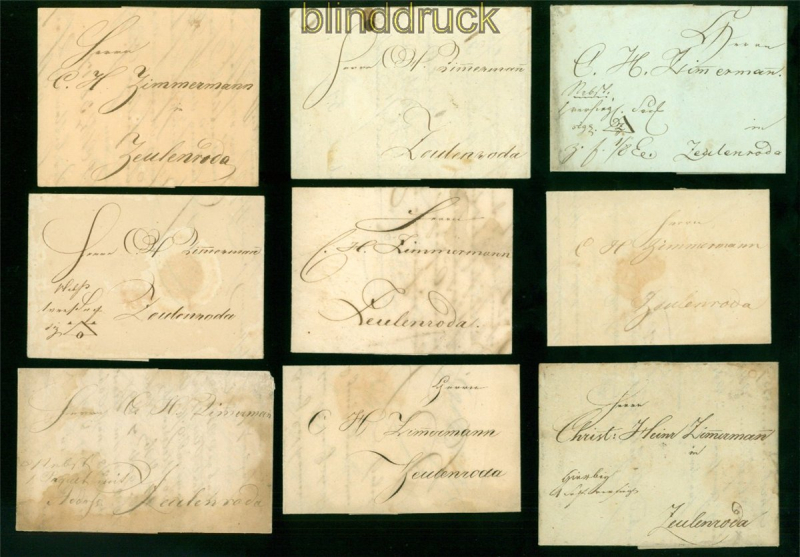 blinddruck
Herrn
C. H. Zimmermann
in
Zeulenroda
Herrn C. H. Zimermañ
Zeulenroda
Herrn
C. H. Zimermañ.
Nebst:
in
Zeulenroda
Herrn C. H. Zimermañ
Zeulenroda
Herrn
C. H. Zimmermann
Zeulenroda.
Herrn
C H Zimmermann
Zeulenroda
Herrn C. H. Zimerman
Zeulenroda
Herrn
C H Zimermann
Zeulenroda
Herrn
Christ: Hein Zimermañ
in
Hierbey
Zeulenroda